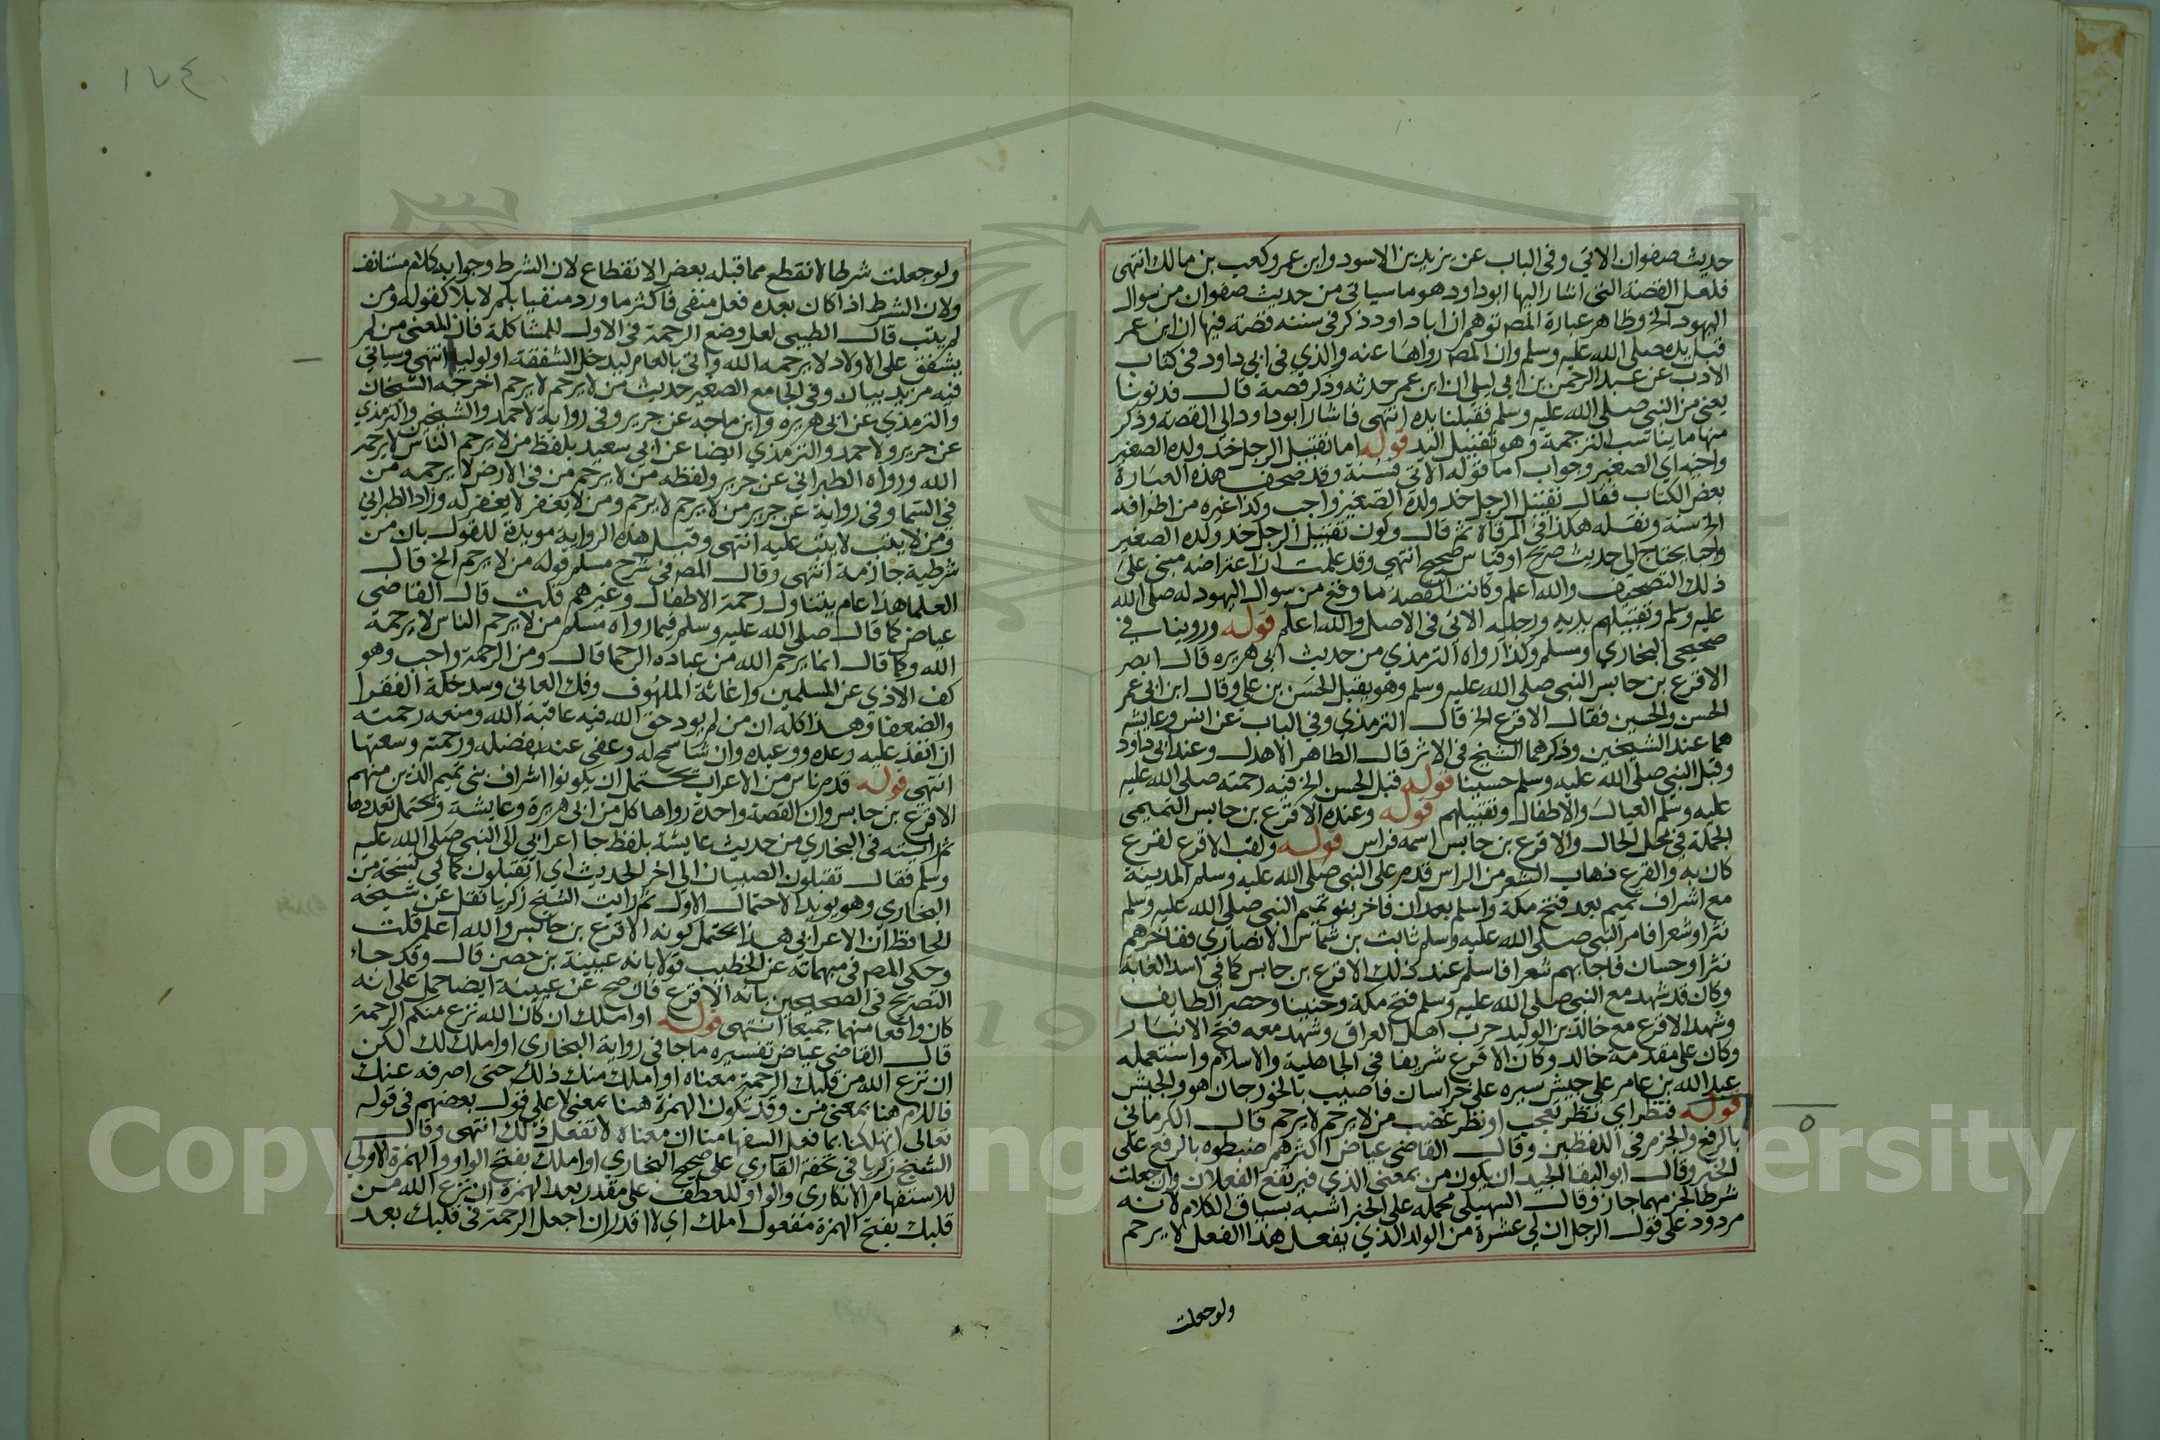 حديث صفوان الاتي وفي الباب عن يزيد بن الاسود وابن عمر وكعب بن مالك انتهى
فلعل القصة التي اشار اليها ابوداود هو ما سياتي من حديث صفوان من سوال
اليهود الخ وظاهر عبارة المصـ توهم ان اباداود ذكر في سننه قصة فيها ان ابن عمر
قبل يده صلى الله عليه وسلم وان المصـ رواها عنه والذي في ابي داود في كتاب
الادب عن عبد الرحمن بن ابي ليلى ان ابن عمر حدثه وذكر قصة قال فدنونا
يعني من النبي صلى الله عليه وسلم فقبلنا يده انتهى فاشار ابوداود الى القصة وذكر
منها ما يناسب الترجمة وهو تقبيل اليد قوله اما تقبيل الرجل خد ولده الصغير
واخيه اي الصغير وجواب اما قوله الاتي فسنة وقد صحف هذه العبارة
بعض الكتاب فقال تقبيل الرجل خد ولده الصغير واجب وكذا غيره من اطرافه
الخ سنة ونقله هكذا في المرقاة ثم قال وكون تقبيل الرجل خد ولده الصغير
واجبا يحتاج الى حديث صريح او قياس صحيح انتهى وقد علمت ان اعتراضه مبني على
ذلك التصحيف والله اعلم وكانت القصة ما وقع من سوال اليهود له صلى الله
عليه وسلم وتقبيلهم يديه ورجليه الاتي في الاصل والله اعلم قوله وروينا في
صحيحي البخاري ومسلم وكذا رواه الترمذي من حديث ابي هريره قال ابصر
الاقرع بن حابس النبي صلى الله عليه وسلم وهو يقبل الحسن بن علي وقال ابن ابي عمر
الحسن والحسين فقال الاقرع الخ قال الترمذي وفي الباب عن انس وعايشه
هما عند الشيخين وذكرهما الشيخ في الاثر قال الطاهر الاهدل وعند ابي داود
وقبل النبي صلى الله عليه وسلم حسينا قوله قبل الحسن الخ فيه رحمته صلى الله عليه
عليه وسلم العيال والاطفال وتقبيلهم قوله وعنده الاقرع بن حابس التميمي
الجملة في محل الحال والاقرع بن حابس اسمه فراس قوله ولقب الاقرع لقرع
كان به والقرع ذهاب الشعر من الراس قدم على النبي صلى الله عليه وسلم المدينة
مع اشراف تميم بعد فتح مكة واسلم بعد ان فاخر بنو تميم النبي صلى الله عليه وسلم
نثرا وشعرا فامر النبي صلى الله عليه وسلم ثابت بن شماس الانصاري ففاخرهم
نثرا وحسان فاجابهم شعرا فاسلم عند ذلك الاقرع بن حابس كما في اسد الغابة
وكان قد شهد مع النبي صلى الله عليه وسلم فتح مكة وحنينا وحصر الطايف
وشهد الاقرع مع خالد بن الوليد حرب اهل العراق وشهد معه فتح الانبار
وكان على مقدمة خالد وكان الاقرع شريفا في الجاهلية والاسلام واستعمله
عبد الله بن عامر على جيش سيره على خراسان فاصيب بالخوزجان هو والجيش
قوله فنظر اي نظر تعجب او نظر غضب من لا يرحم لا يرحم قال الكرماني
بالرفع والجزم في اللفظين وقال القاضي عياض اكثرهم ضبطوه بالرفع على
الخبر وقال ابو البقا الجيد ان يكون من بمعنى الذي فيرتفع الفعلان وان جعلت
شرطا لجزمهما جاز وقال السهيلي محمله على الخبر اشبه بسياق الكلام لانه
مردود على قول الرجل ان لي عشرة من الولد الذي يفعل هذا الفعل لا يرحم
ولو جعلت
١٧٤
ولو جعلت شرطا لانقطع مما قبله بعض الانقطاع لان الشرط وجوابه كلام مستانف
ولان الشرط اذا كان بعده فعل منفي فاكثر ما ورد منفيا بلم لا بلا كقوله ومن
لم يتب قال الطيبي لعل وضع الرحمة في الاول للمشاكلة فان المعنى من لم
يشفق على الاولاد لا يرحمه الله واتى بالعام ليدخل الشفقة انتهى وسياتي
فيه مزيد بيان وفي الجامع الصغير حديث من لا يرحم لا يرحم اخرجه الشيخان
والترمذي عن ابي هريره وابن ماجه عن جرير وفي رواية لاحمد والشيخين والترمذي
عن جرير ولاحمد والترمذي ايضا عن ابي سعيد بلفظ من لا يرحم الناس لا يرحمه
الله ورواه الطبراني عن جرير ولفظه من لا يرحم من في الارض لا يرحمه من
في السما وفي رواية عن جرير من لا يرحم لا يرحم ومن لا يغفر لا يغفر له وزاد الطبراني
ومن لا يتب لا يتب عليه انتهى وقبل هذه الرواية مويدة للقول بان من
شرطية جازمة انتهى وقال المصـ في شرح مسلم قوله من لا يرحم الخ قال
العلما هذا عام يتناول رحمة الاطفال وغيرهم قلت قال القاضي
عياض كما قال صلى الله عليه وسلم فيما رواه مسلم من لا يرحم الناس لا يرحمه
الله وكما قال انما يرحم الله من عباده الرحما قال ومن الرحمة واجب وهو
كف الاذي عن المسلمين واغاثة الملهوف وفك العاني وسد خلة الفقرا
والضعفا وهذا كله ان من لم يود حق الله فيه عاقبه الله ومنعه رحمته
ان انفذ عليه وعده ووعيده وان شا سمح له وعفى عنه بفضله ورحمته وسعتها
انتهى قوله قدم ناس من الاعراب يحتمل ان يكونوا اشراف بني تميم الذين منهم
الاقرع بن حابس وان القصة واحدة رواها كل من ابي هريرة وعايشة ويحتمل تعددها
ثم رايته في البخاري من حديث عايشة بلفظ جا اعرابي الى النبي صلى الله عليه
وسلم فقال تقبلون الصبيان الى اخر الحديث اي اتقبلون كما في نسخة من
البخاري وهو يويد الاحتمال الاول ثم رايت الشيخ زكريا نقل عن شيخه
الحافظ ان الاعرابي هذا يحتمل كونه الاقرع بن حابس والله اعلم قلت
وحكى المصـ في مبهماته عن الخطيب قولا بانه عيينة بن حصن قال وقد جاء
التصريح في الصحيحين بانه الاقرع فان صح عن عيينة ايضا حمل على انه
كان واقعا منهما جميعا انتهى قوله او املك ان كان الله نزع منكم الرحمة
قال القاضي عياض تفسيره ما جا في رواية البخاري او املك لك لكن
ان نزع الله من قلبك الرحمة معناه او املك منك ذلك حتى اصرفه عنك
فاللام هنا بمعنى من وقد تكون الهمزة هنا بمعنى لا على قول بعضهم في قوله
تعالى اتهلكنا بما فعل السفها منا ان معناه لا تفعل ذلك انتهى وقال
الشيخ زكريا في تحفة القاري على صحيح البخاري او املك بفتح الواو والهمزة الاولي
للاستفهام الانكاري والواو للعطف على مقدر بعد الهمزة ان نزع الله من
قلبك بفتح الهمزة مفعول املك اي لا اقدر ان اجعل الرحمة في قلبك بعد